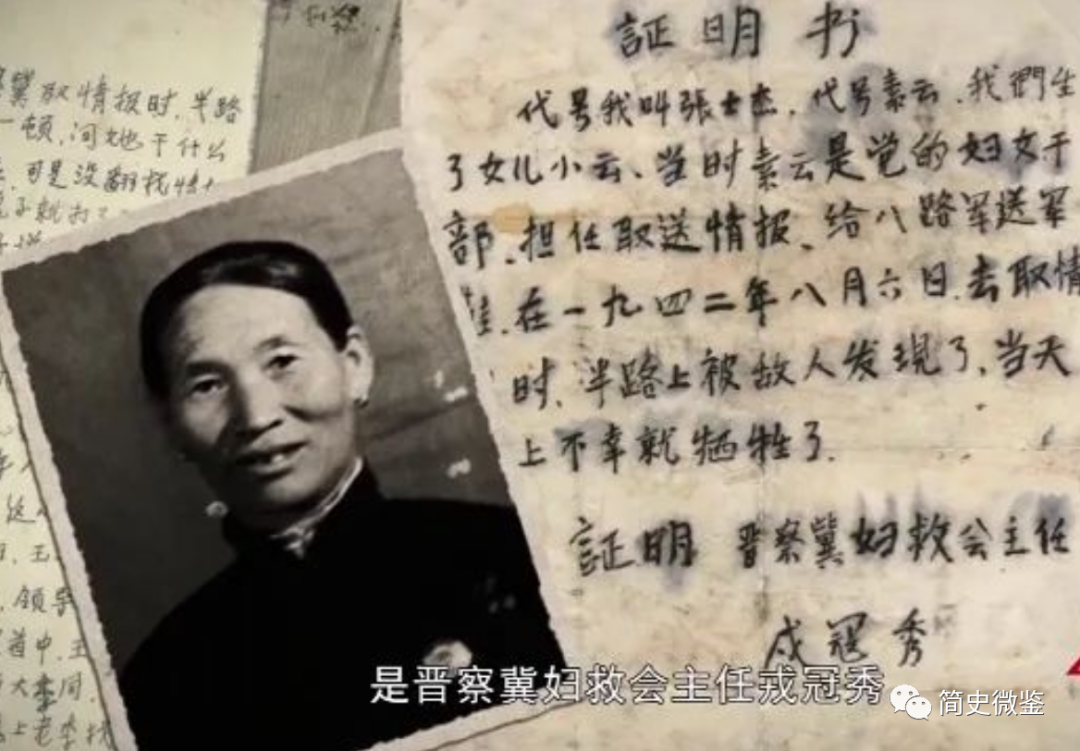 冀取情报时,半路
一顿,问她干什么
可是没翻找
子就打了
領导
道中,王
大李同
上老李
証明书
代号我叫張士杰,代号素云,我們生
了女儿小云、当时素云是党的妇女干
部、担任取送情报、给八路军送军
鞋、在一九四二年八月六日去取情
时、半路上被敌人发现了、当天
上不幸就牺牲了.
証明 晋察冀妇救会主任
戎冠秀
是晋察冀妇救会主任戎冠秀
简史微鉴